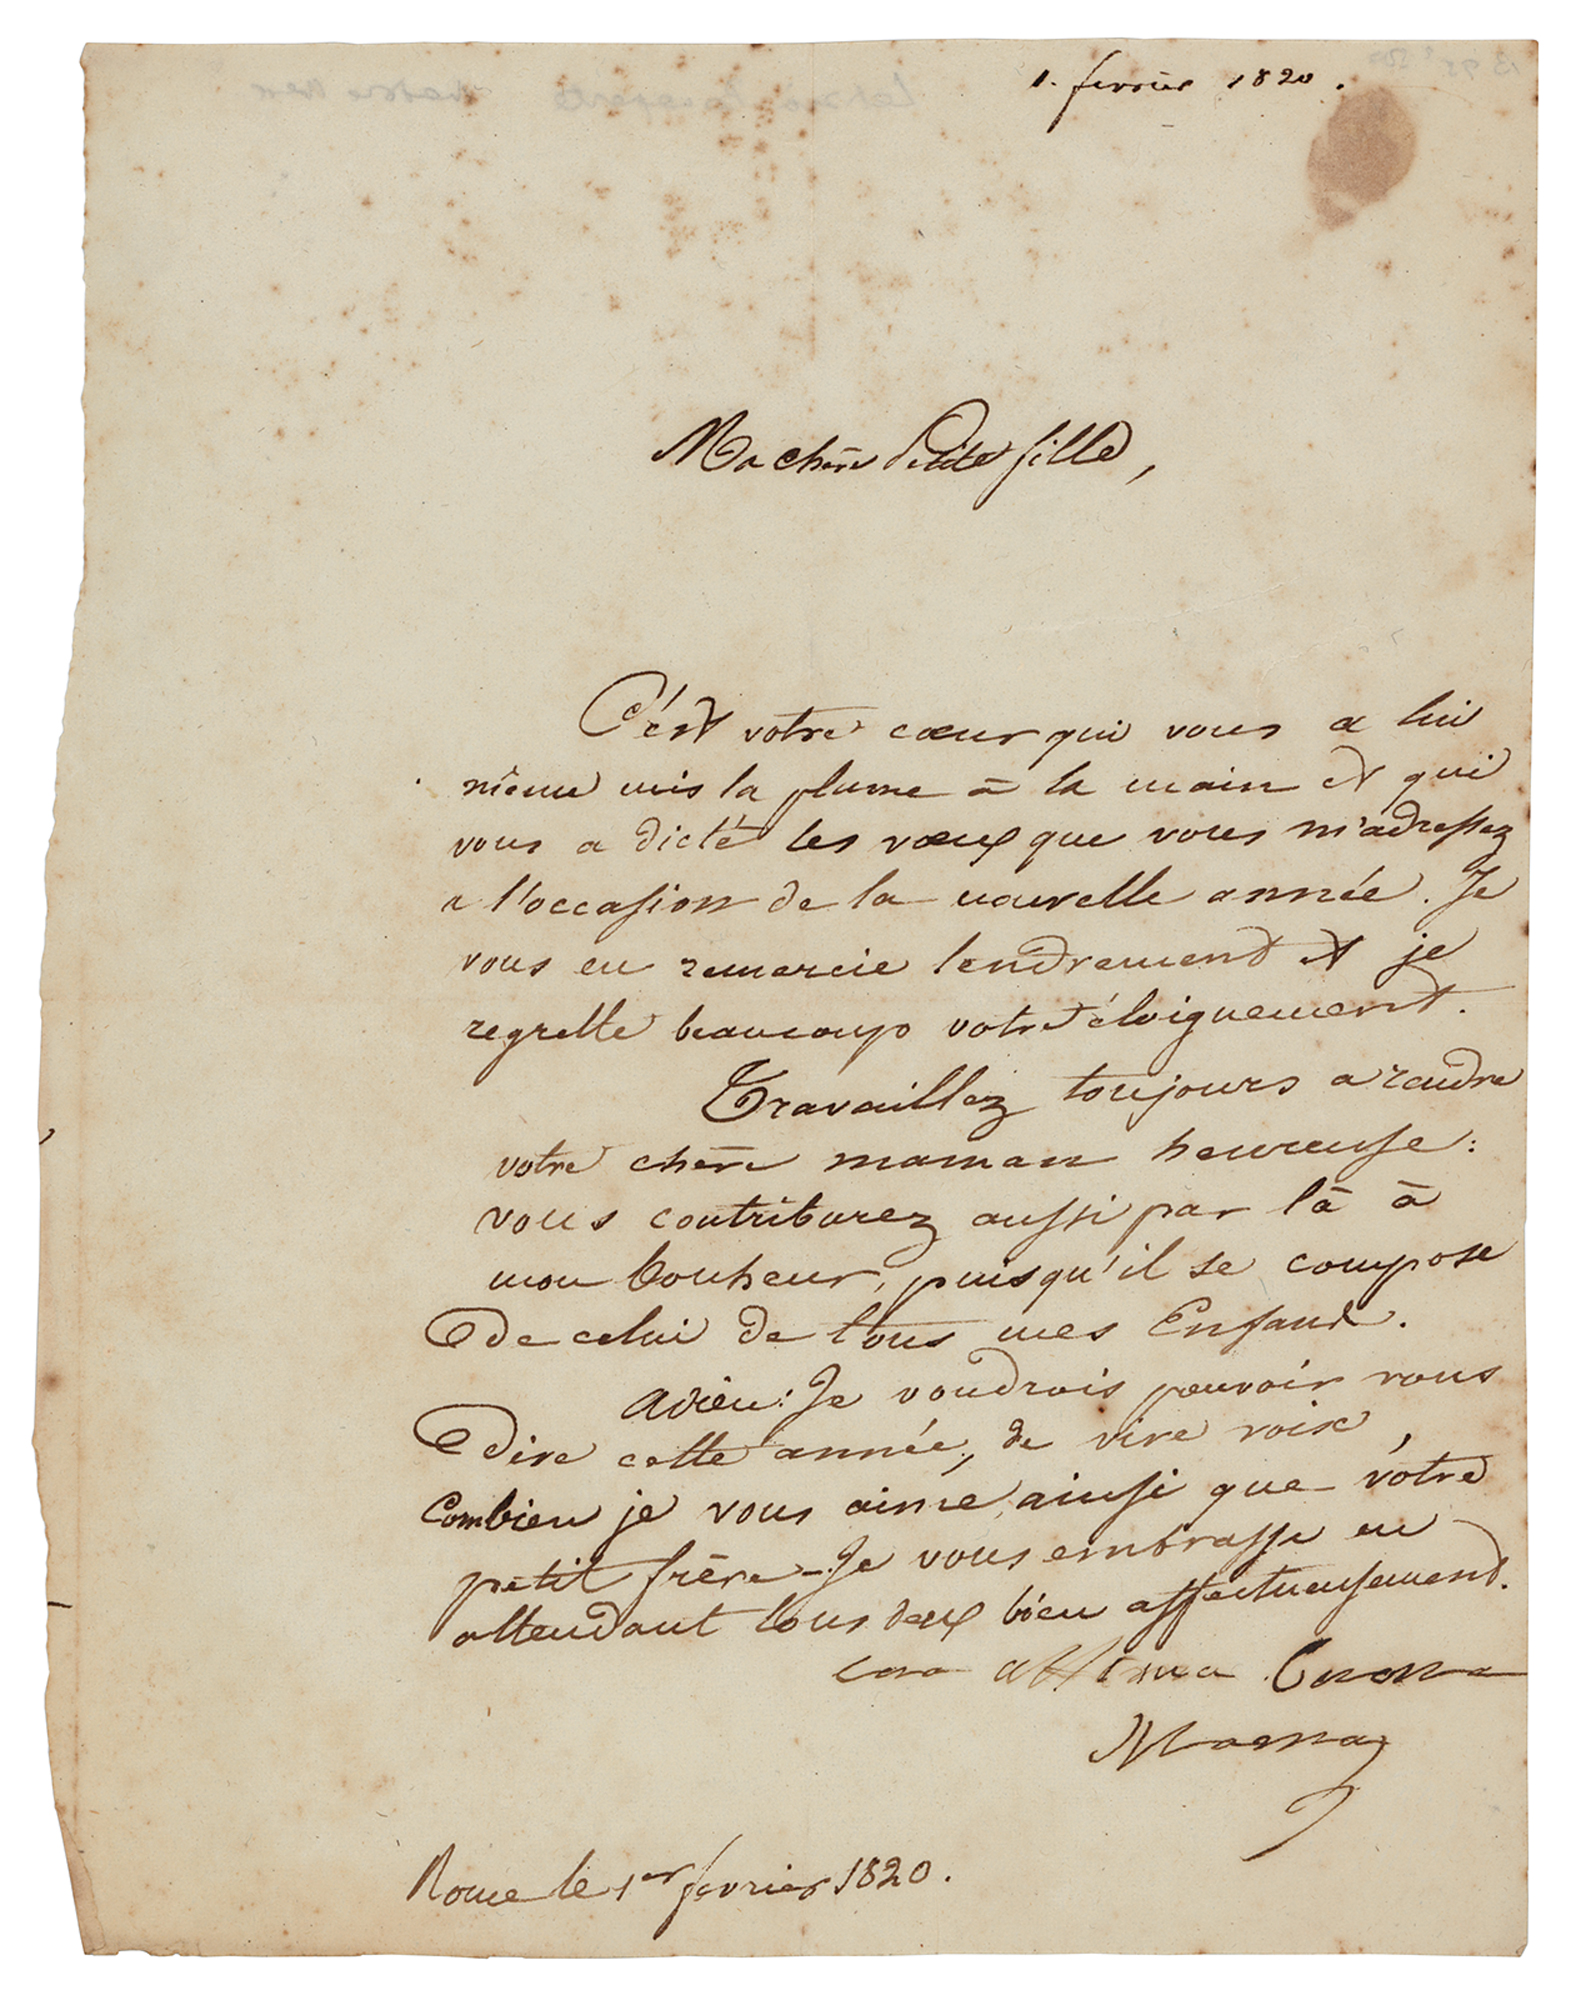 1. fevrier 1820.
Ma chère Petite fille,
C'est votre cœur qui vous a lui
même mis la plume à la main et qui
vous a dicté les vœux que vous m'adressez
a l'occasion de la nouvelle année. Je
vous en remercie tendrement et je
regrette beaucoup votre éloignement.
Travaillez toujours a rendre
votre chère maman heureuse:
vous contriburez aussi par là à
mon bonheur, puisqu'il se compose
de celui de tous mes Enfans.
Adieu: Je voudrais pouvoir vous
dire cette année, de vive voix,
Combien je vous aime, ainsi que votre
petit frère - Je vous embrasse en
attendant tous deux bien affectueusement.
Nonna
Rome le 1er fevrier 1820.